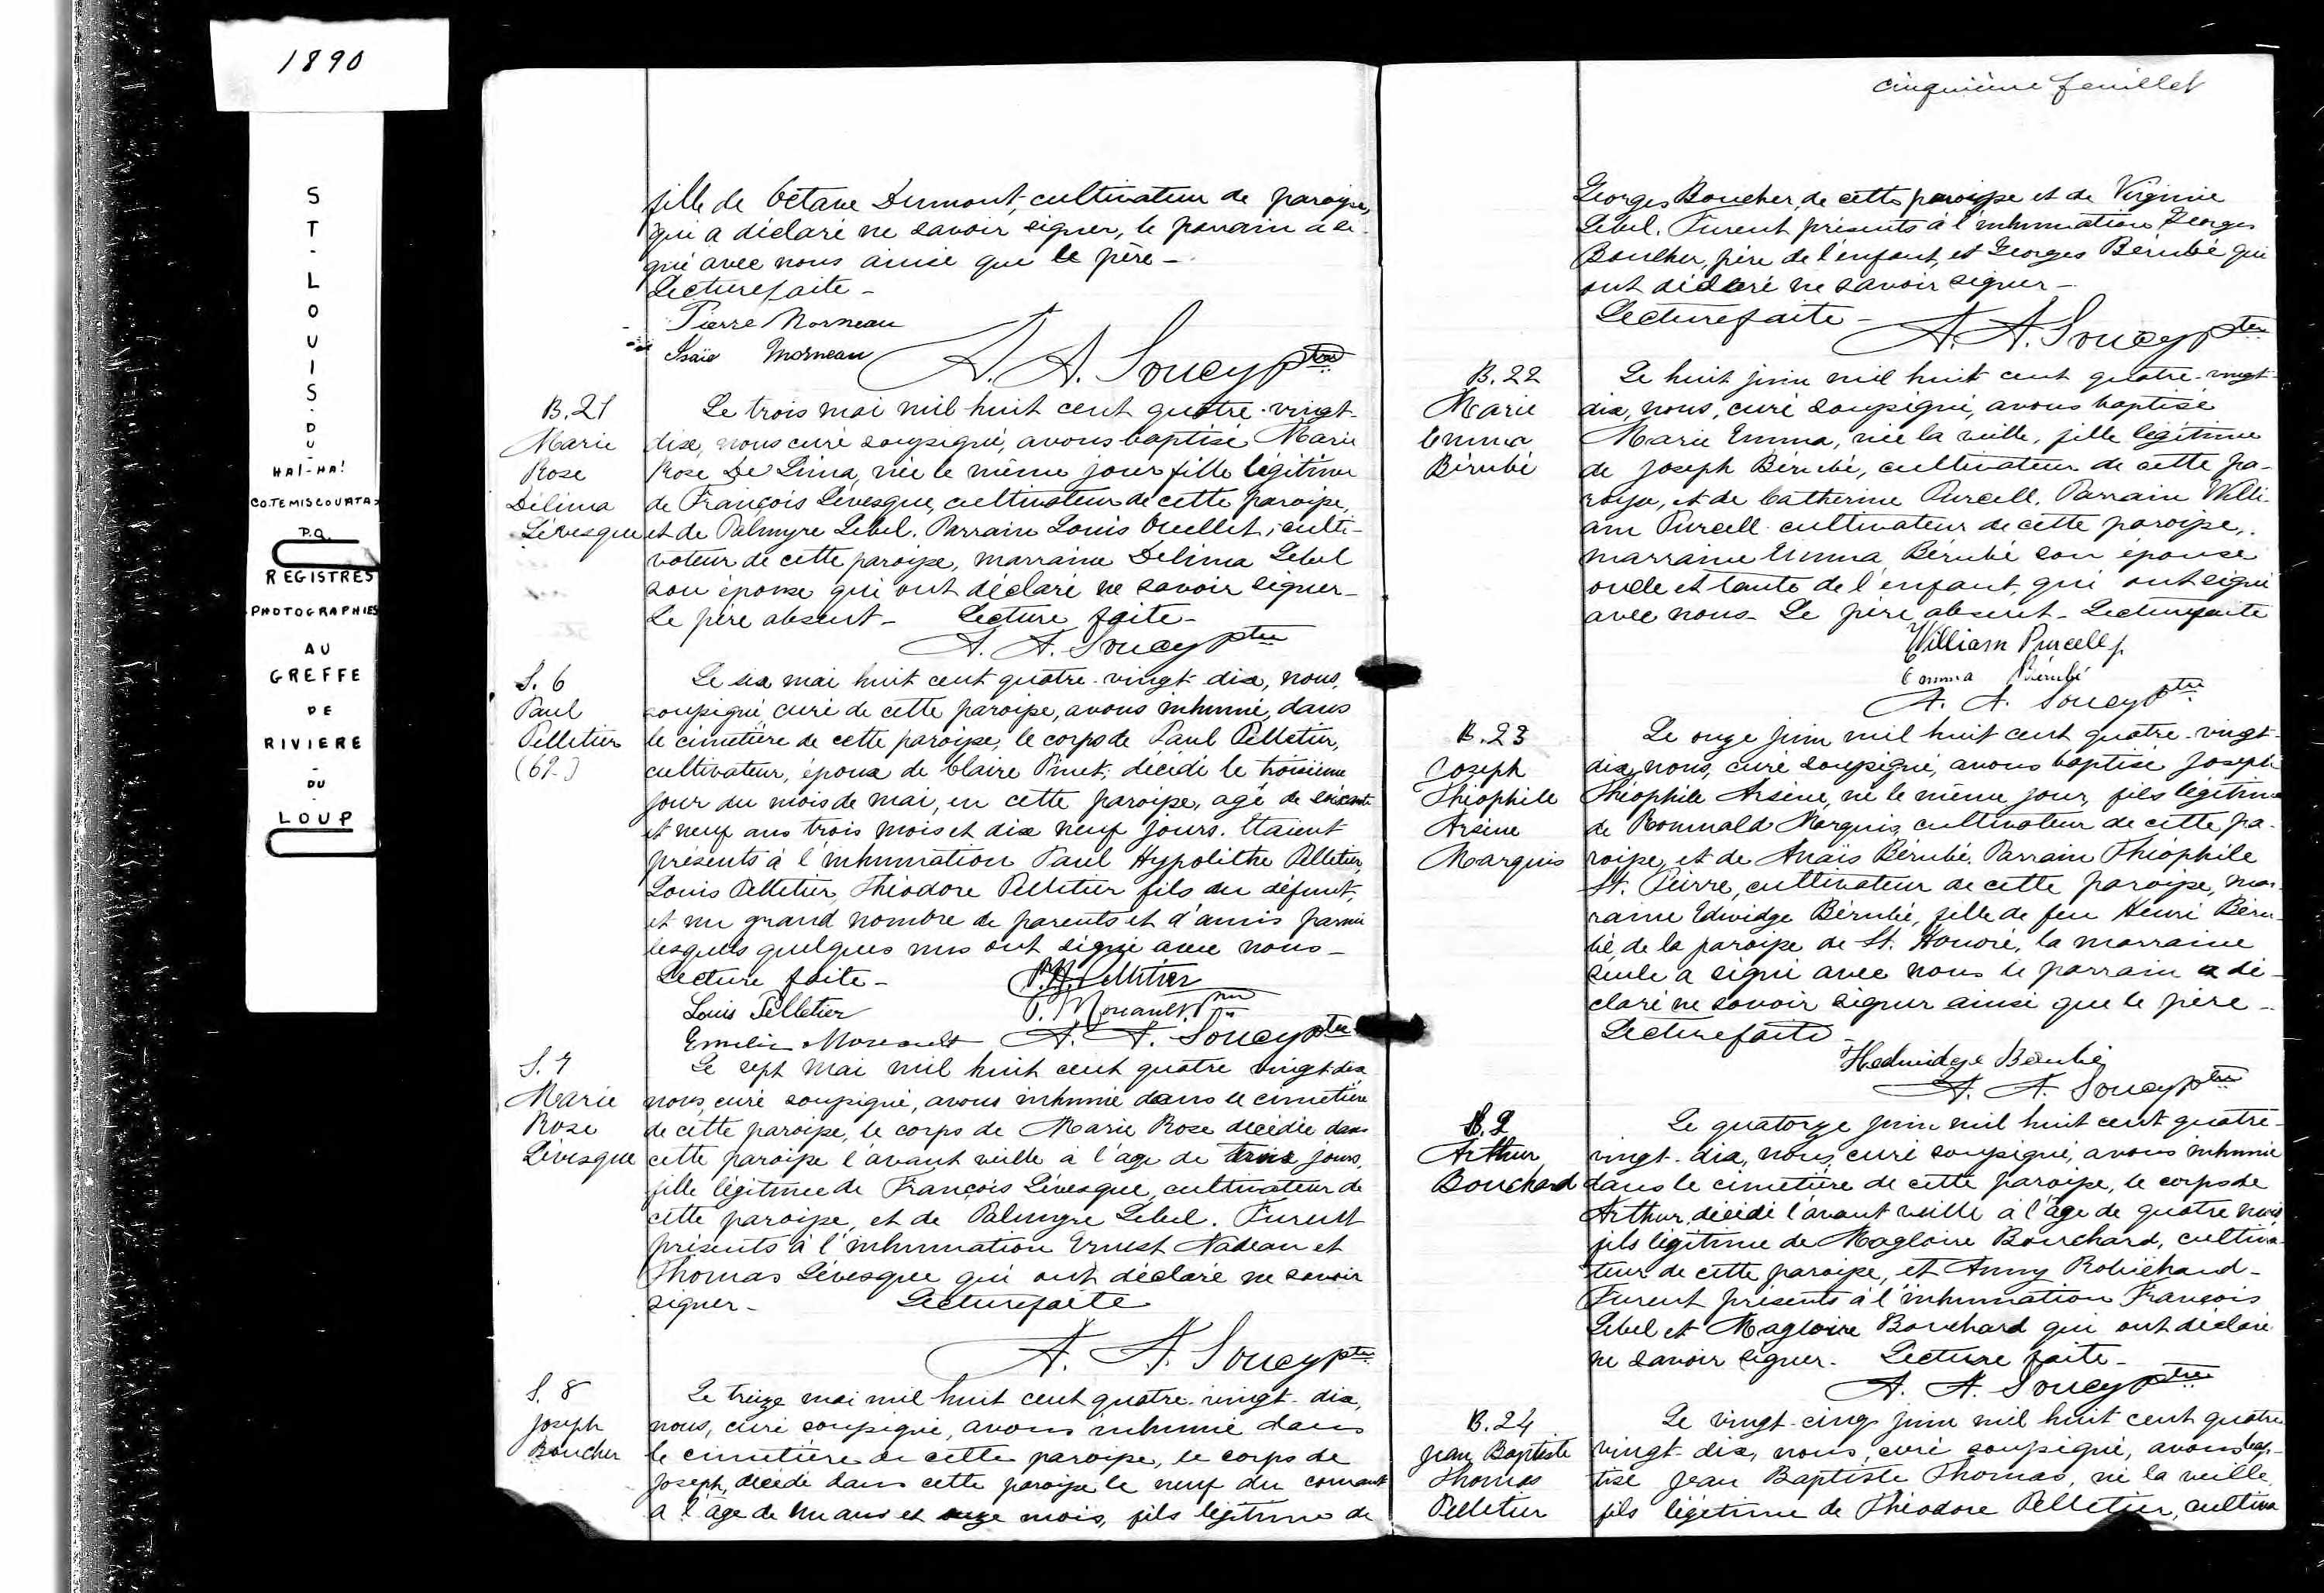 1890
ST-LOUIS-DU-
HA!-HA!
CO.TEMISCOUATA
P.Q.
REGISTRES
PHOTOGRAPHIES
AU
GREFFE
DE
RIVIERE
-
DU
-
LOUP
fille de Octave Dumont, cultivateur de paroisse,
qui a déclaré ne savoir signer, le parrain a si-
gné avec nous ainsi que le père -
Lecture faite -
Pierre Morneau
Isaïe Morneau
A. A. Soucy ptre
B. 21
Marie
Rose
Délima
Lévesque
Le trois mai mil huit cent quatre-vingt-
dix, nous curé soussigné, avons baptisé Marie
Rose De Lima, née le même jour fille légitime
de François Lévesque, cultivateur de cette paroisse,
et de Palmyre Lebel. Parrain Louis Ouellet, culti-
vateur de cette paroisse, marraine Delima Lebel
son épouse qui ont déclaré ne savoir signer -
Le père absent - Lecture faite -
A. A. Soucy ptre
S. 6
Paul
Pelletier
(69.)
Le six mai huit cent quatre-vingt-dix, nous,
soussigné, curé de cette paroisse, avons inhumé, dans
le cimetière de cette paroisse, le corps de Paul Pelletier,
cultivateur, époux de Claire Pinet, décédé le troisième
jour du mois de mai, en cette paroisse, agé de soixante
et neuf ans trois mois et dix neuf jours. Etaient
présents à l'inhumation Paul Hypolithe Pelletier,
Louis Pelletier, Théodore Pelletier fils du défunt,
et un grand nombre de parents et d'amis parmi
lesquels quelques uns ont signé avec nous -
Lecture faite - P. H. Pelletier
Louis Pelletier
Emilie Moreault A. A. Soucy ptre
S. 7
Marie
Rose
Lévesque
Le sept mai mil huit cent quatre vingt-dix
nous, curé soussigné, avons inhumé dans le cimetière
de cette paroisse, le corps de Marie Rose décédée dans
cette paroisse l'avant veille a l'age de trois jours,
fille légitime de François Lévesque, cultivateur de
cette paroisse, et de Palmyre Lebel. Furent
présents à l'inhumation Ernest Nadeau et
Thomas Lévesque qui ont déclaré ne savoir
signer - Lecture faite
A. A. Soucy ptre
S. 8
Joseph
Boucher
Le treize mai mil huit cent quatre-vingt-dix,
nous, curé soussigné, avons inhumé dans
le cimetière de cette paroisse, le corps de
Joseph, décédé dans cette paroisse le neuf du courant
a l'âge de un ans et onze mois, fils légitime de
cinquième feuillet
Georges Boucher, de cette paroisse et de Virginie
Lebel. Furent présents à l'inhumation Georges
Boucher, père de l'enfant, et Georges Bérubé qui
ont déclaré ne savoir signer -
Lecture faite -
A. A. Soucy ptre
B. 22
Marie
Emma
Bérubé
Le huit juin mil huit cent quatre-vingt-
dix, nous, curé soussigné, avons baptisé
Marie Emma, née la veille, fille légitime
de Joseph Bérubé, cultivateur de cette pa-
roisse, et de Catherine Purcell. Parrain Willi-
am Purcell cultivateur de cette paroisse,
marraine Emma Bérubé son épouse
oncle et tante de l'enfant, qui ont signé
avec nous - Le père absent - Lecture faite
William Purcell
Emma Bérubé
A. A. Soucy ptre
B. 23
Joseph
Théophile
Arsène
Marquis
Le onze juin mil huit cent quatre-vingt-
dix, nous, curé soussigné, avons baptisé Joseph
Théophile Arsène, né le même jour, fils légitime
de Romuald Marquis, cultivateur de cette pa-
roisse, et de Anaïs Bérubé. Parrain Théophile
St. Pierre, cultivateur de cette paroisse, mar-
raine Edwidge Bérubé, fille de feu Henri Béru-
bé, de la paroisse de St. Honoré, la marraine
seule a signé avec nous le parrain a dé-
claré ne savoir signer ainsi que le père -
Lecture faite -
Hedwidge Bérubé
A. A. Soucy ptre
S. 9
Arthur
Bouchard
Le quatorze juin mil huit cent quatre-
vingt-dix, nous, curé soussigné, avons inhumé
dans le cimetière de cette paroisse, le corps de
Arthur, décédé l'avant veille à l'âge de quatre mois,
fils légitime de Magloire Bouchard, cultiva-
teur de cette paroisse, et Anny Robichaud -
Furent présents à l'inhumation François
Lebel et Magloire Bouchard qui ont déclaré
ne savoir signer - Lecture faite -
A. A. Soucy ptre
B. 24
Jean Baptiste
Thomas
Pelletier
Le vingt-cinq juin mil huit cent quatre
vingt-dix, nous, curé soussigné, avons bap-
tisé Jean Baptiste Thomas, né la veille,
fils légitime de Théodore Pelletier, cultiva